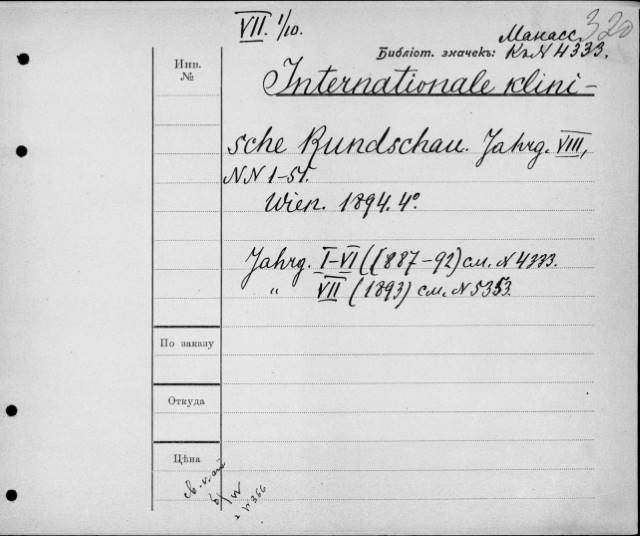 VII. 1/10.
320
Манасс.
Библіот. значекъ: Къ N 4333.
Инв.
№
Internationale klini-
sche Rundschau. Jahrg. VIII,
NN 1-51.
Wien. 1894. 4º.
Jahrg. I-VI (1887-92) см. N 4333.
" VII (1893) см. N 5353.
По заказу
Откуда
Цѣна